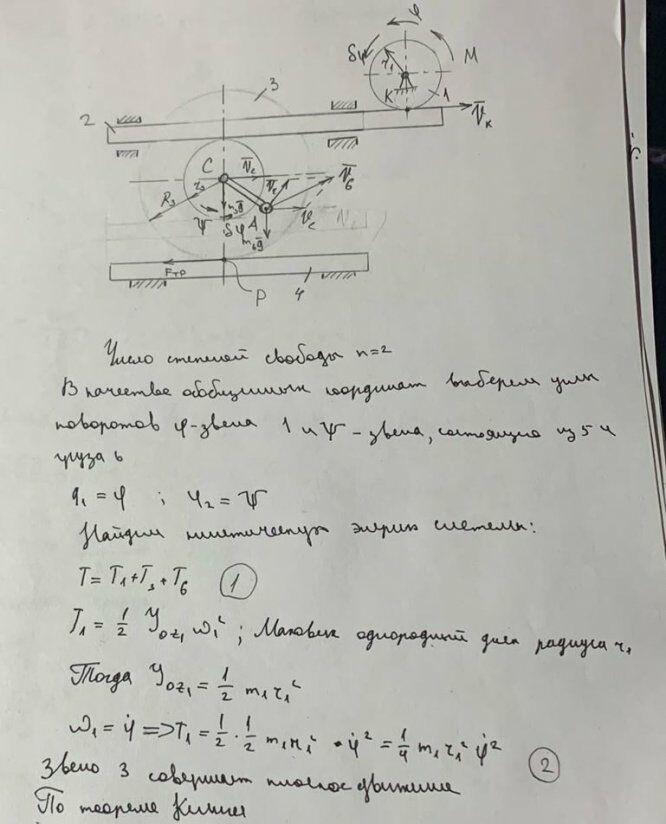 φ
δφ
M
r₁
K
1
V̄ₖ
2
3
C
V̄c
V̄6
V̄c
r₃
R₃
ψ
δψ
A
m₃ḡ
m₆ḡ
Fтр
P
4
Число степеней свободы n=2
В качестве обобщенных координат выберем углы
поворотов φ-звена 1 и ψ - звена, состоящего из 5 и
груза 6
q₁ = φ ; φ₂ = ψ
Найдем кинетическую энергию системы:
T = T₁ + T₃ + T₆ (1)
T₁ = 1/2 Joz₁ ω₁² ; Маховик однородный диск радиуса r₁
Тогда Joz₁ = 1/2 m₁ r₁²
ω₁ = φ̇ => T₁ = 1/2 · 1/2 m₁ r₁² · φ̇² = 1/4 m₁ r₁² φ̇² (2)
Звено 3 совершает плоское движение
По теореме Кёнига